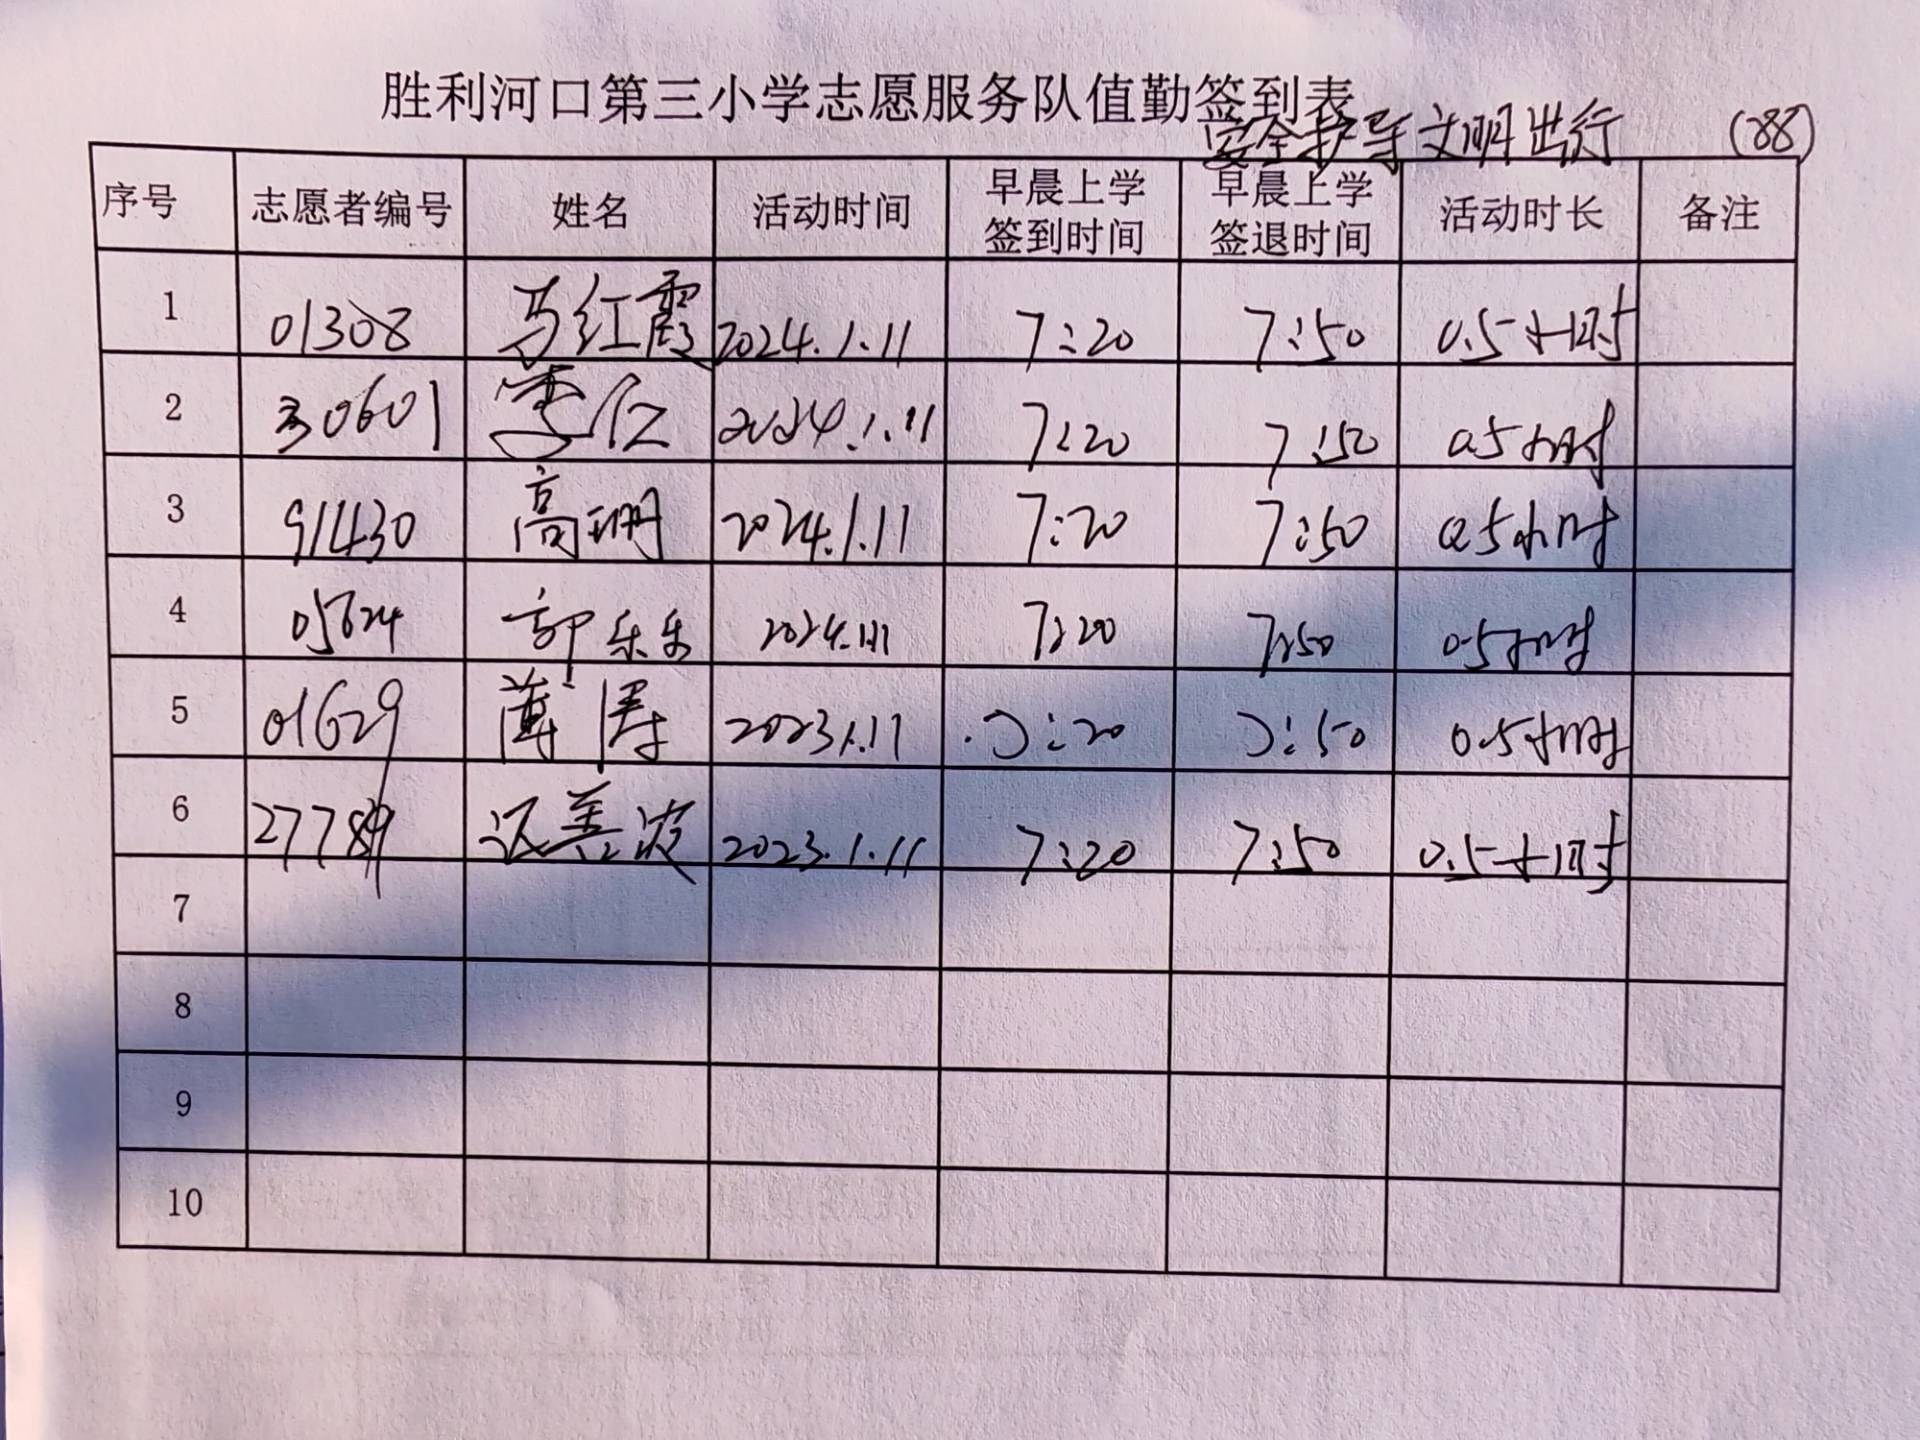 胜利河口第三小学志愿服务队值勤签到表
安全护导 文明出行 (88)
序号 志愿者编号 姓名 活动时间 早晨上学签到时间 早晨上学签退时间 活动时长 备注
1 01308 马红霞 2024.1.11 7:20 7:50 0.5小时
2 30601 李仁 2024.1.11 7:20 7:50 0.5小时
3 91430 高珊 2024.1.11 7:20 7:50 0.5小时
4 05624 郭乐乐 2024.1.11 7:20 7:50 0.5小时
5 01629 薄涛 2023.1.11 7:20 7:50 0.5小时
6 27789 2023.1.11 7:20 7:50 0.5小时
7
8
9
10